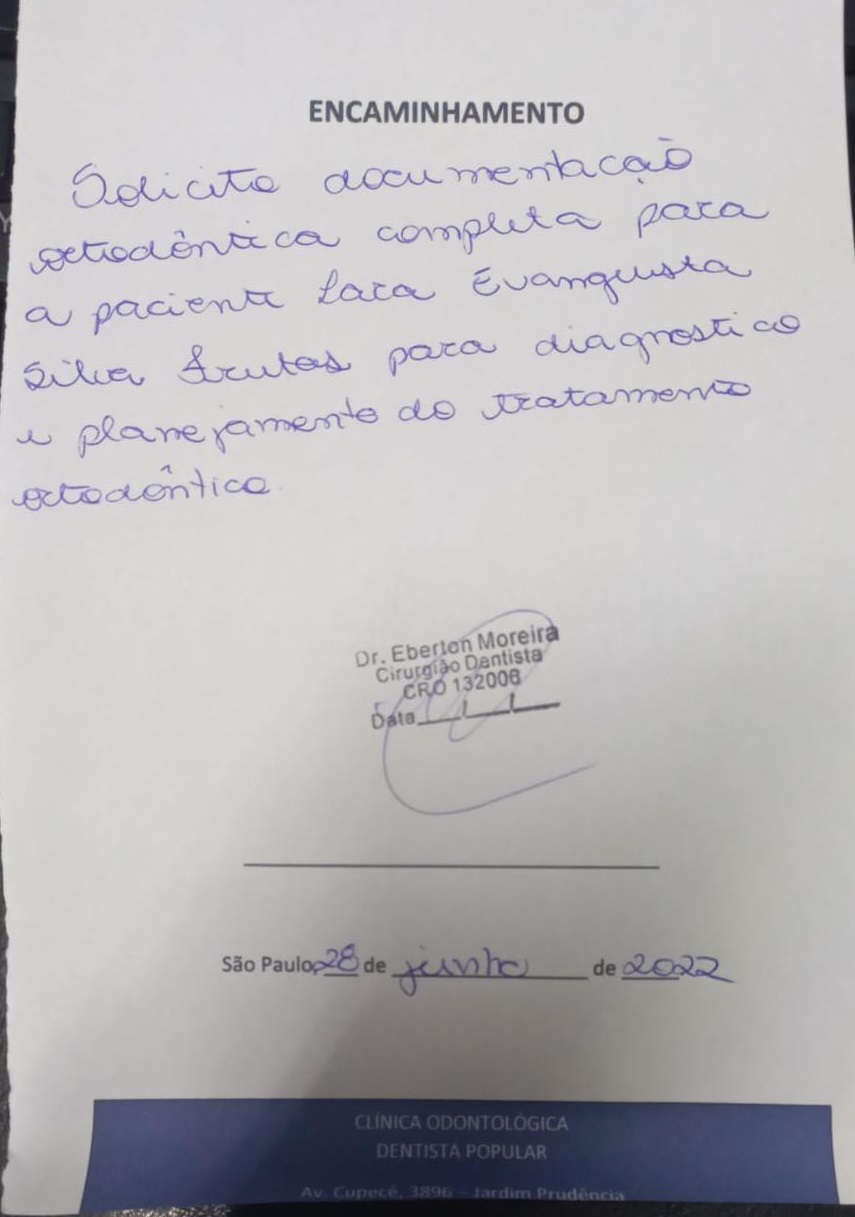 ENCAMINHAMENTO
Solicito documentação
ortodôntica completa para
a paciente Lara Evangelista
Silva Frutas para diagnostico
e planejamento do tratamento
ortodôntico.
Dr. Eberton Moreira
Cirurgião Dentista
CRO 132006
Data__/__/__
São Paulo, 28 de junho de 2022
CLÍNICA ODONTOLÓGICA
DENTISTA POPULAR
Av. Cupecê, 3896 – Jardim Prudência